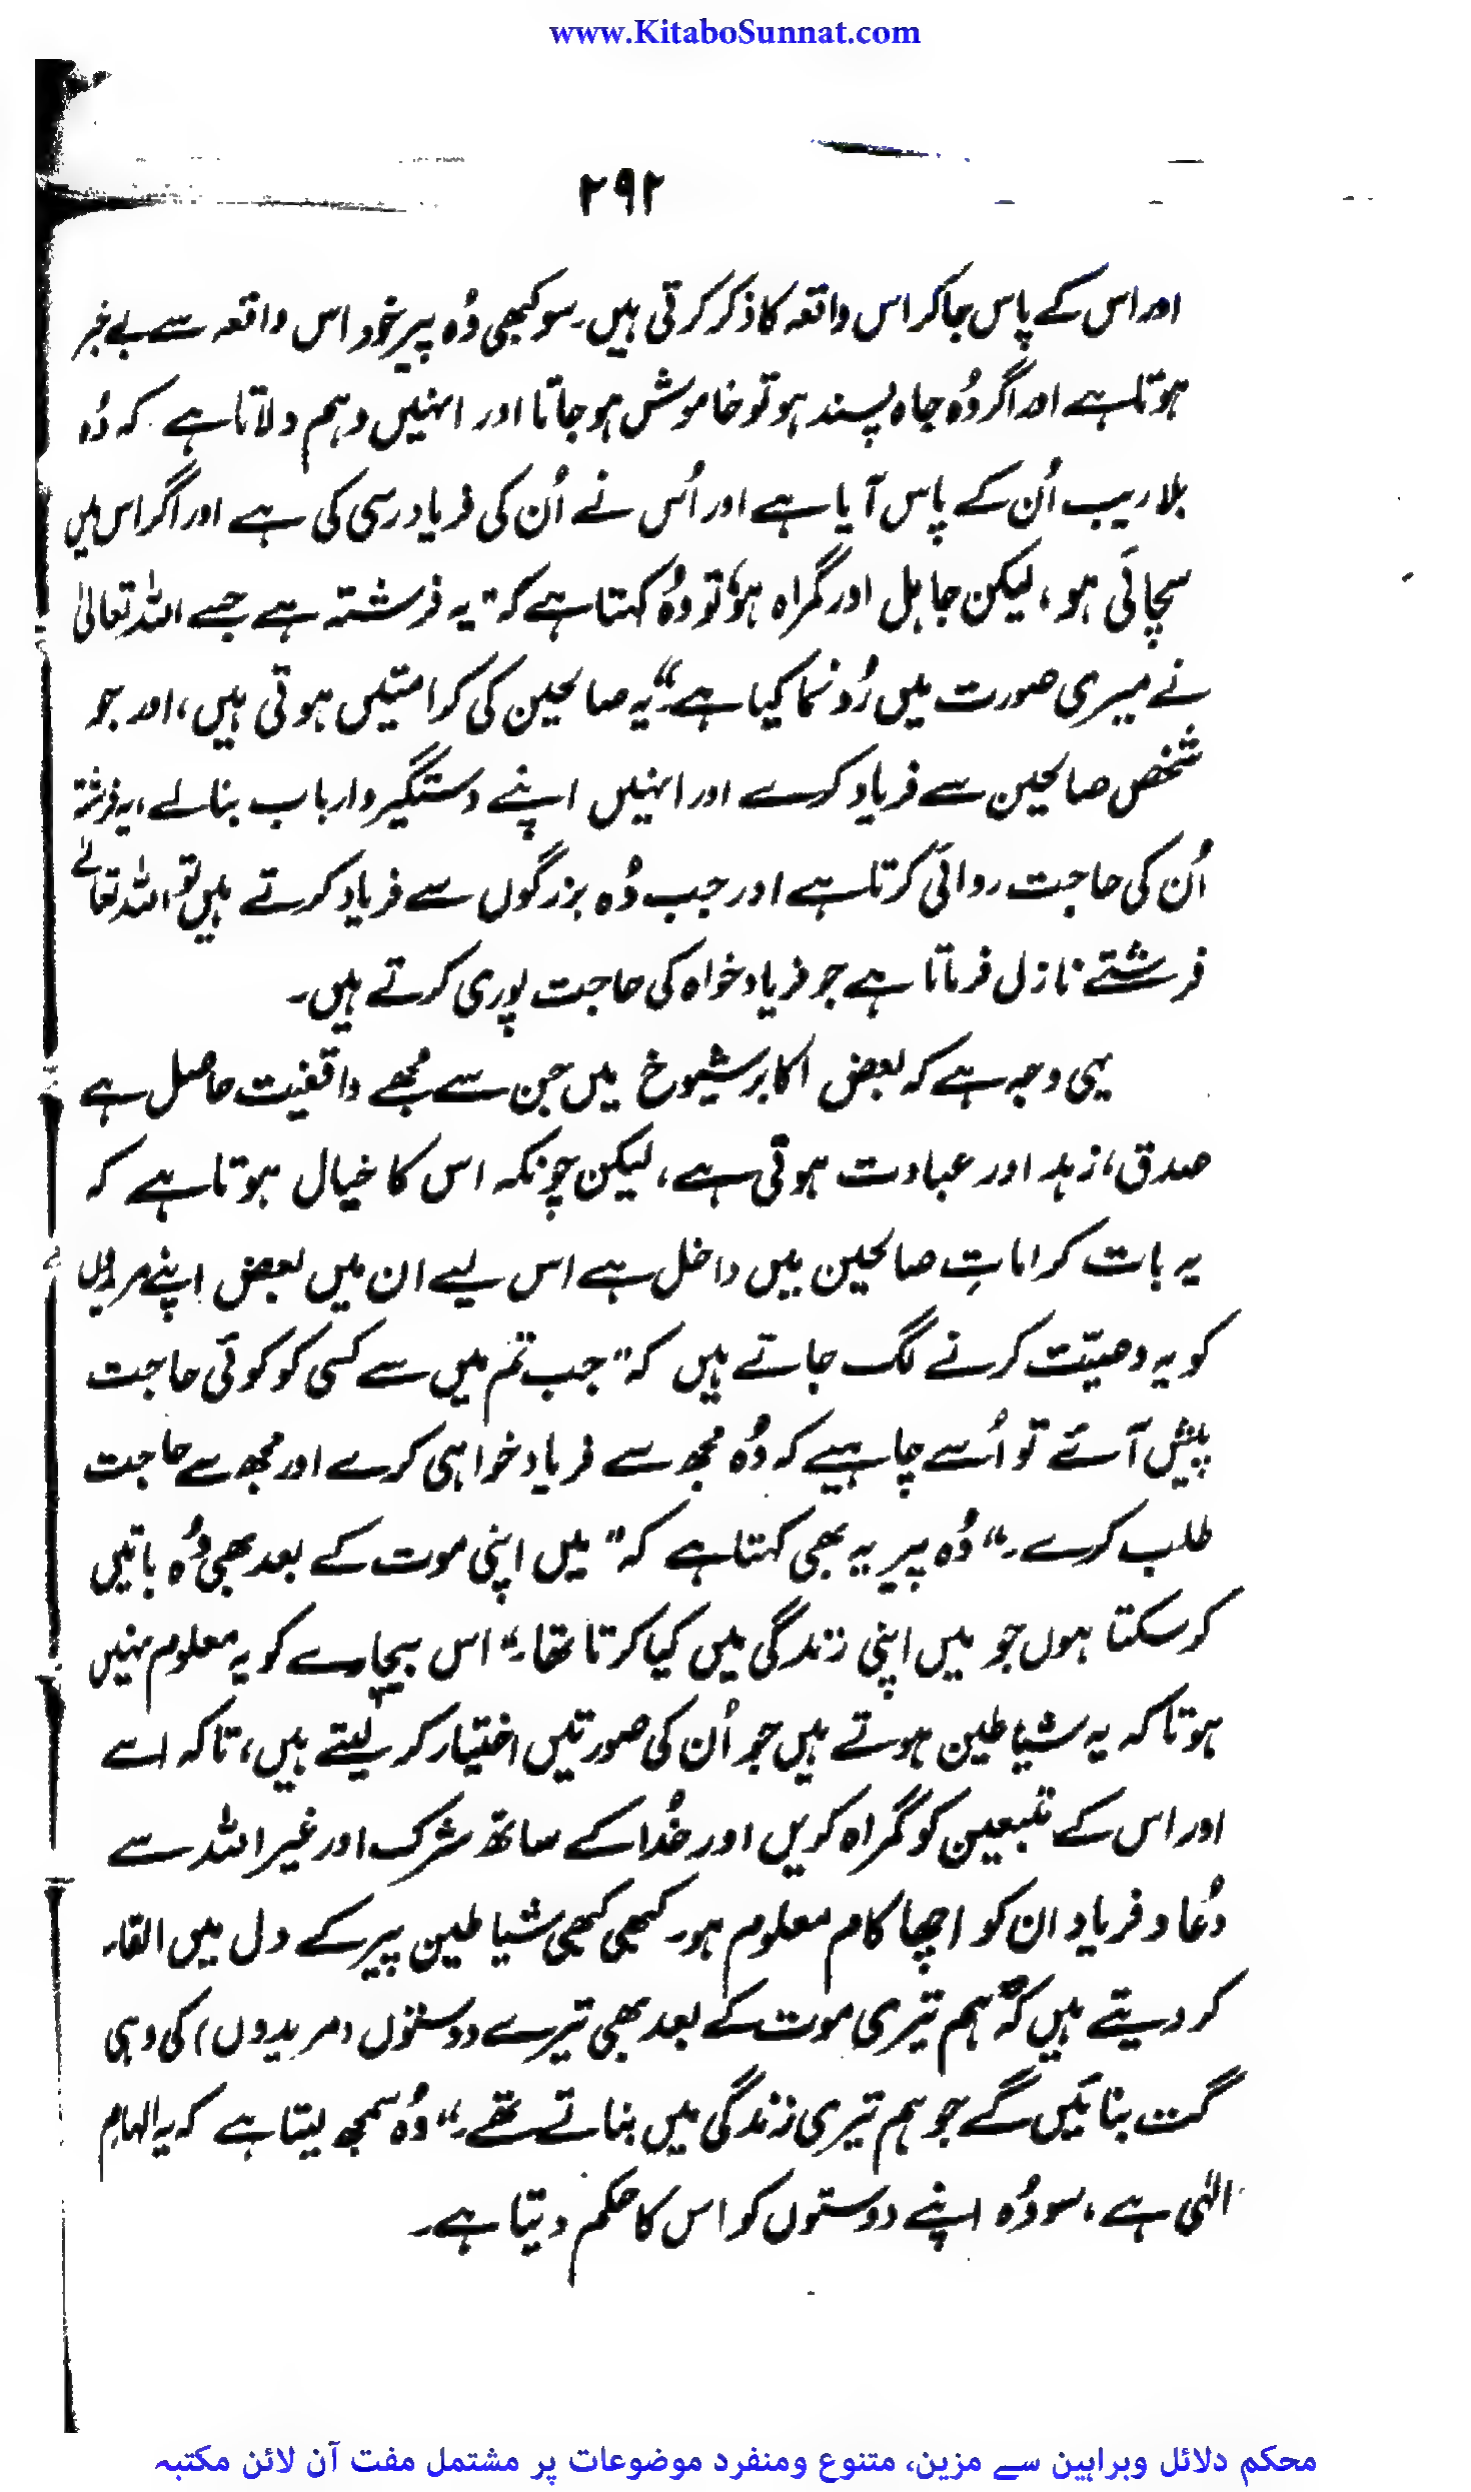 www.KitaboSunnat.com
۲۹۲
اور اس کے پاس جا کر اس واقعہ کا ذکر کرتی ہیں۔ سو کبھی وُہ پیر خود اس واقعہ سے بے خبر
ہوتا ہے اور اگر وُہ جاہ پسند ہو تو خاموش ہو جاتا اور انہیں وہم دلاتا ہے کہ وُہ
بلا ریب اُن کے پاس آیا ہے اور اُس نے اُن کی فریاد رسی کی ہے اور اگر اس میں
سچائی ہو، لیکن جاہل اور گمراہ ہو، تو وُہ کہتا ہے کہ "یہ فرشتہ ہے جسے اللہ تعالیٰ
نے میری صورت میں رُونما کیا ہے" یہ صالحین کی کرامتیں ہوتی ہیں، اور جو
شخص صالحین سے فریاد کرے اور انہیں اپنے دستگیر و ارباب بنا لے، یہ فرشتہ
اُن کی حاجت روائی کرتا ہے اور جب وُہ بزرگوں سے فریاد کرتے ہیں تو اللہ تعالےٰ
فرشتے نازل فرماتا ہے جو فریاد خواہ کی حاجت پوری کرتے ہیں۔
یہی وجہ ہے کہ بعض اکابر شیوخ میں جن سے مجُھے واقفیت حاصل ہے
صدق، زہد اور عبادت ہوتی ہے، لیکن چونکہ اس کا خیال ہوتا ہے کہ
یہ بات کراماتِ صالحین میں داخل ہے اس لیے ان میں بعض اپنے مریدوں
کو یہ وصیّت کرنے لگ جاتے ہیں کہ "جب تم میں سے کسی کو کوئی حاجت
پیش آئے تو اُسے چاہیے کہ وُہ مجھ سے فریاد خواہی کرے اور مجھ سے حاجت
طلب کرے۔" وُہ پیر یہ بھی کہتا ہے کہ "میں اپنی موت کے بعد بھی وُہ باتیں
کر سکتا ہوں جو میں اپنی زندگی میں کیا کرتا تھا۔" اس بیچارے کو یہ معلوم نہیں
ہوتا کہ یہ شیاطین ہوتے ہیں جو اُن کی صورتیں اختیار کر لیتے ہیں، تاکہ اسے
اور اس کے متبعین کو گمراہ کریں اور خُدا کے ساتھ شرک اور غیر اللہ سے
دُعا و فریاد ان کو اچھا کام معلوم ہو۔ کبھی کبھی شیاطین پیر کے دل میں القاء
کر دیتے ہیں کہ "ہم تیری موت کے بعد بھی تیرے دوستوں (مریدوں) کی وہی
گت بنائیں گے جو ہم تیری زندگی میں بناتے تھے۔" وُہ سمجھ لیتا ہے کہ یہ الہامِ
الٰہی ہے، سو وُہ اپنے دوستوں کو اس کا حکم دیتا ہے۔
محکم دلائل وبراہین سے مزین، متنوع ومنفرد موضوعات پر مشتمل مفت آن لائن مکتبہ